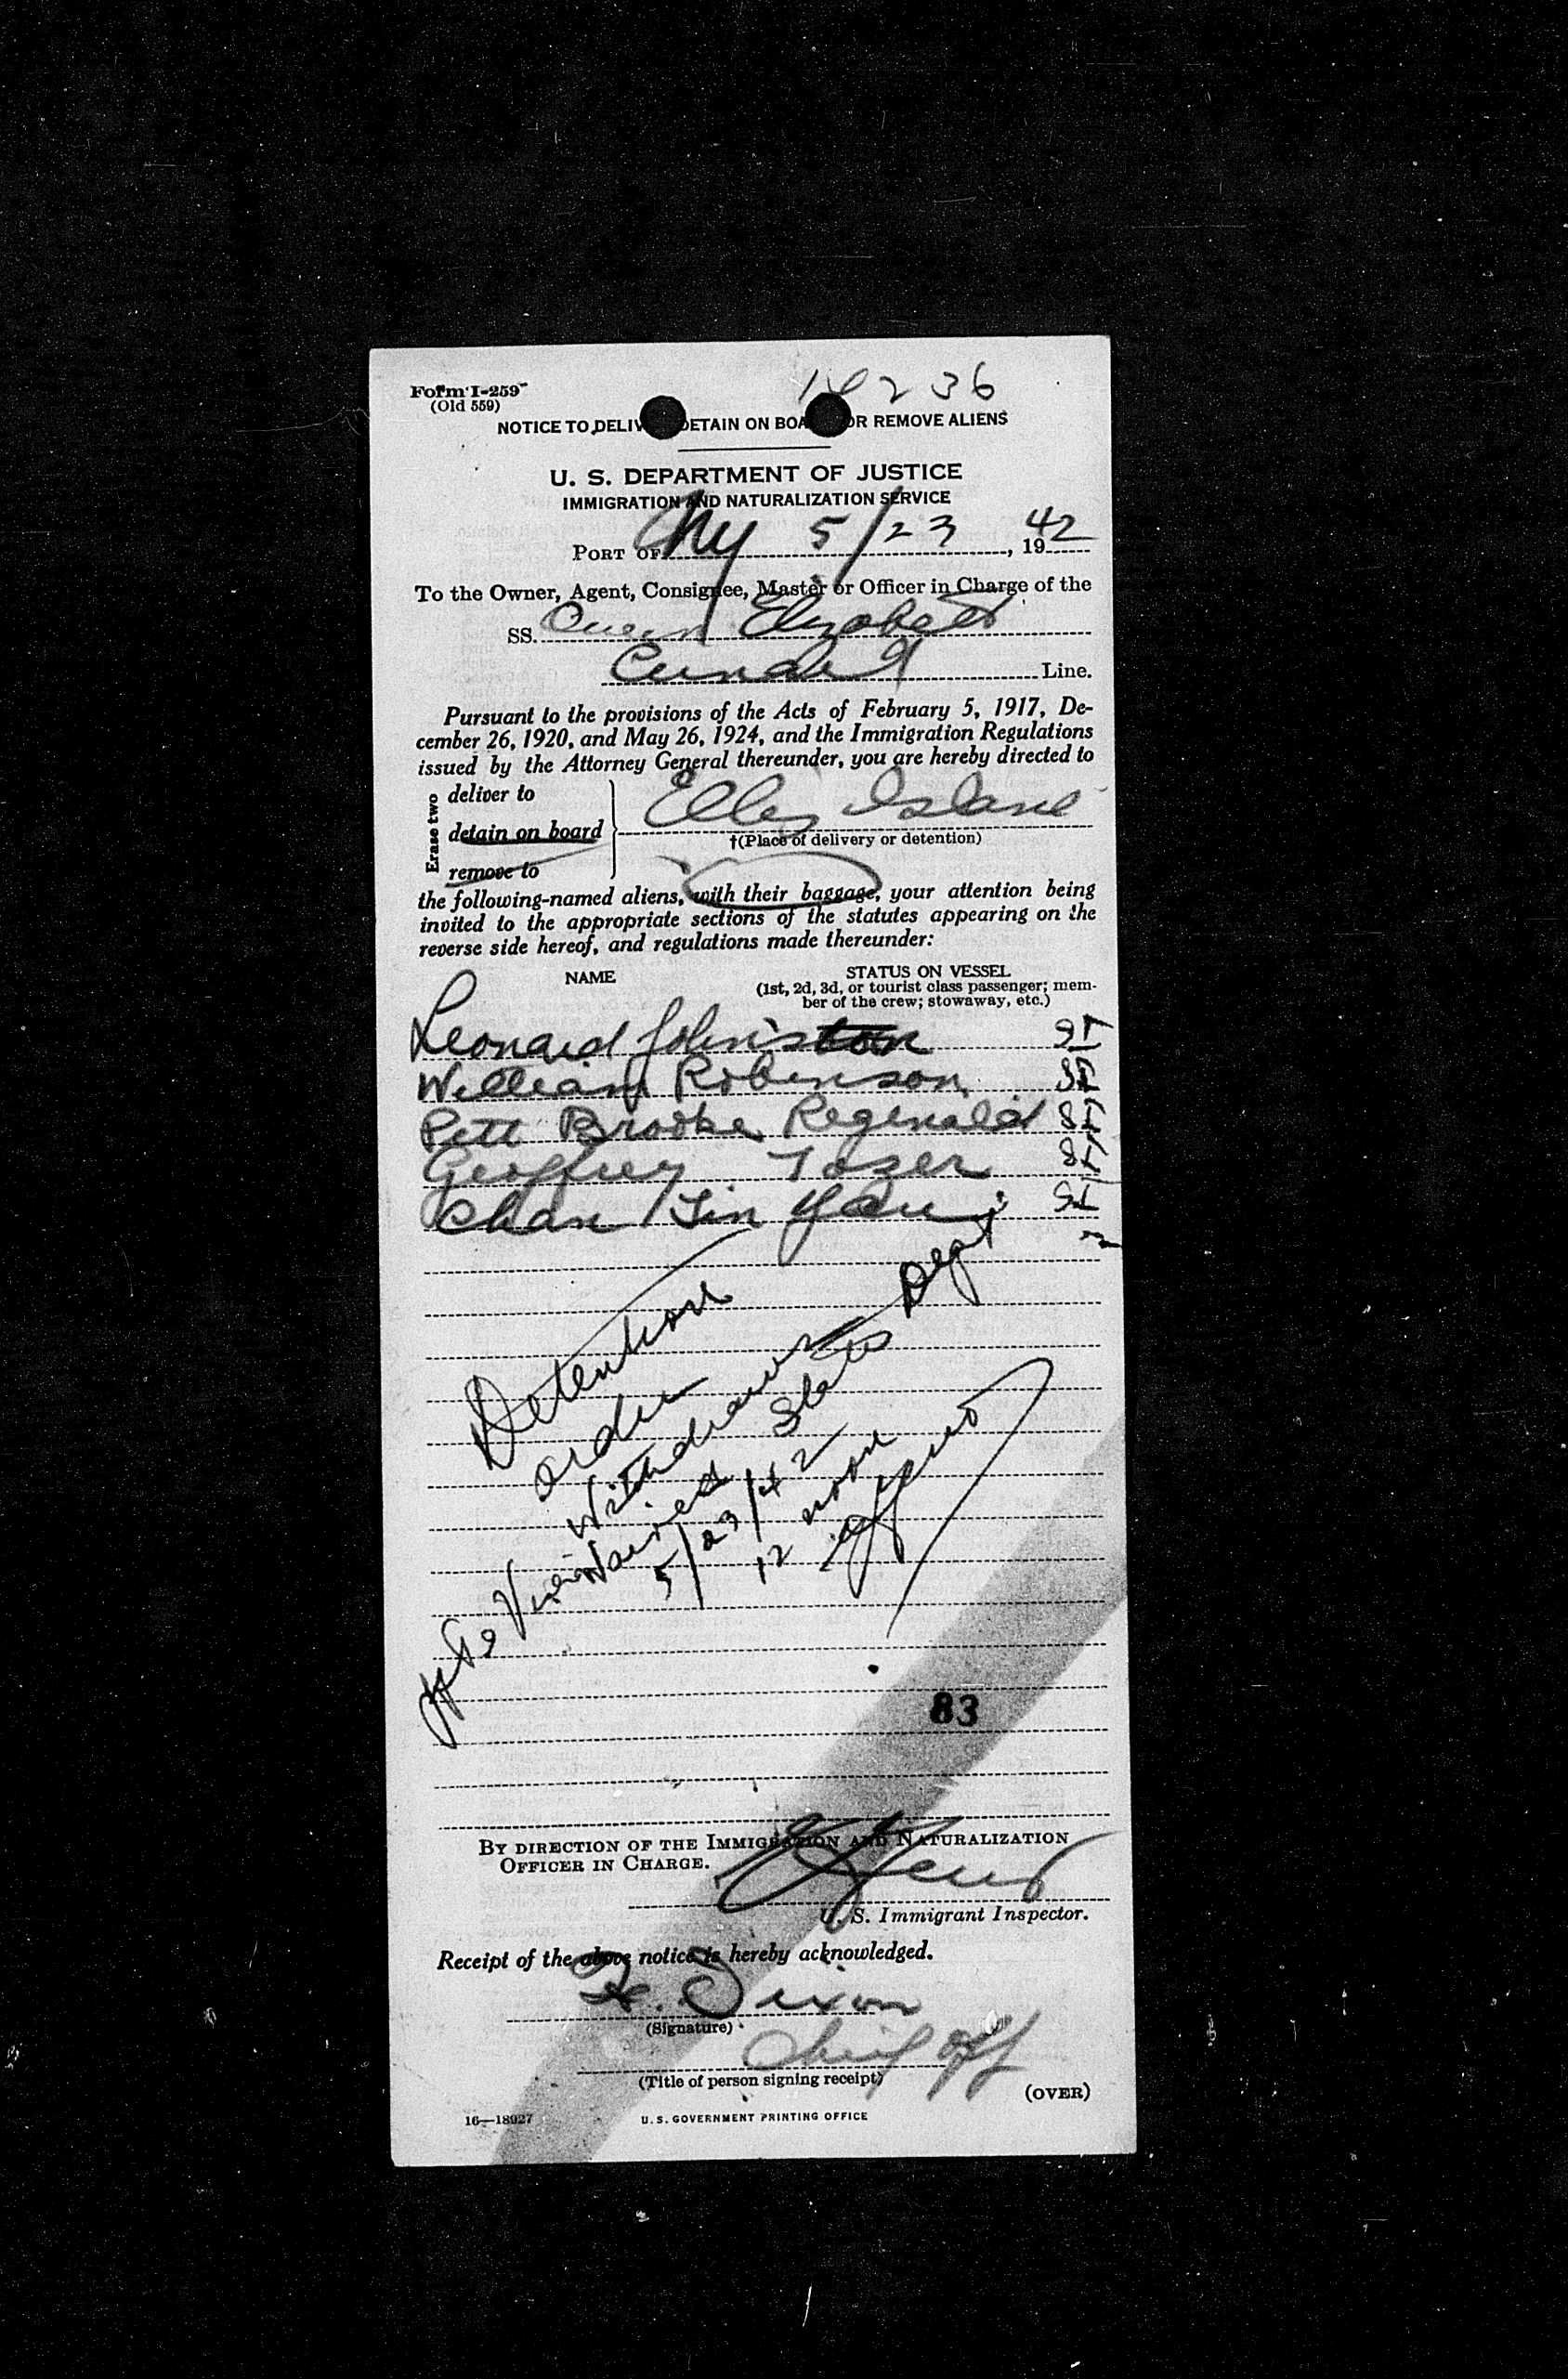 Form I-259
(Old 559)
236
NOTICE TO DELIV DETAIN ON BOA OR REMOVE ALIENS
U. S. DEPARTMENT OF JUSTICE
IMMIGRATION AND NATURALIZATION SERVICE
PORT OF NY 5/23, 1942
To the Owner, Agent, Consignee, Master or Officer in Charge of the
SS. Queen Elizabeth
Cunard Line.
Pursuant to the provisions of the Acts of February 5, 1917, De-
cember 26, 1920, and May 26, 1924, and the Immigration Regulations
issued by the Attorney General thereunder, you are hereby directed to
Erase two
deliver to
detain on board
remove to
Ellis Island
†(Place of delivery or detention)
the following-named aliens, with their baggage, your attention being
invited to the appropriate sections of the statutes appearing on the
reverse side hereof, and regulations made thereunder:
NAME
STATUS ON VESSEL
(1st, 2d, 3d, or tourist class passenger; mem-
ber of the crew; stowaway, etc.)
Leonard Johnston
William Robinson
Pett Brooke Reginald
Geoffrey Tozer
Chan Yau
Detention
order
Withdrawn
States Dept
5/23/42
12 noon
83
BY DIRECTION OF THE IMMIGRATION AND NATURALIZATION
OFFICER IN CHARGE.
U. S. Immigrant Inspector.
Receipt of the above notice is hereby acknowledged.
Dixon
(Signature)
Chief Off
(Title of person signing receipt)
(OVER)
16—18927
U. S. GOVERNMENT PRINTING OFFICE